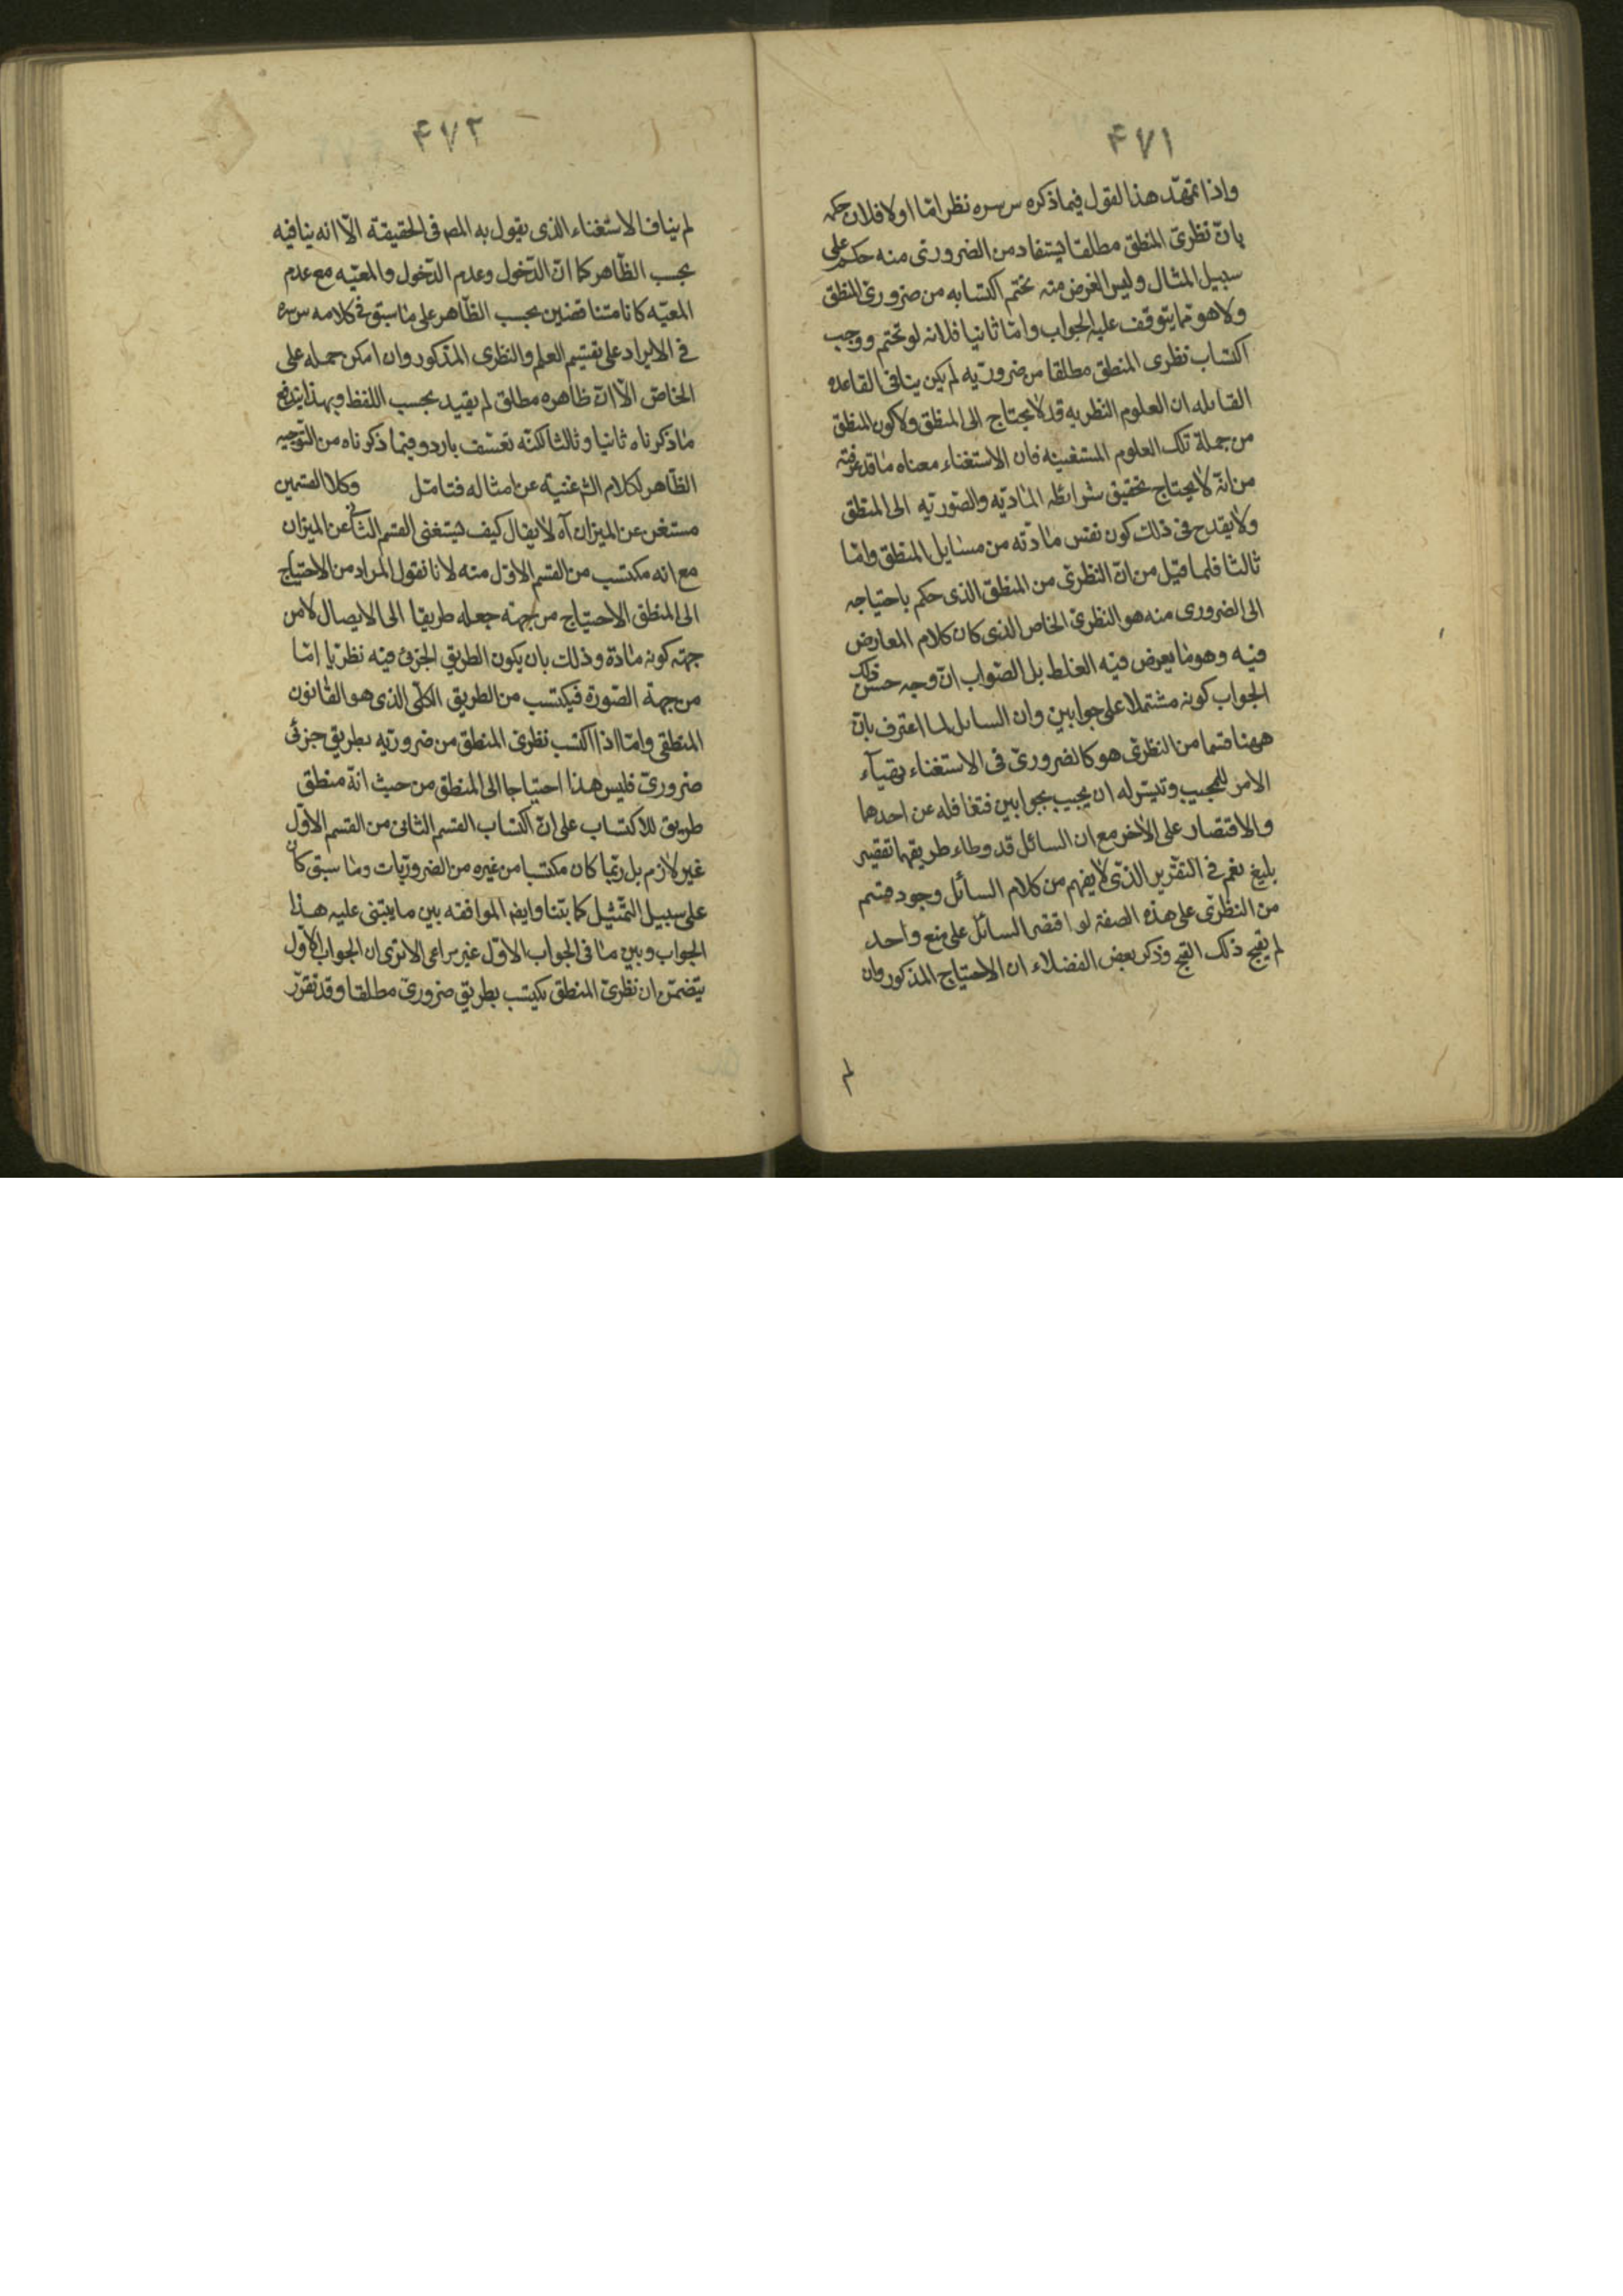 ۴۷۱
واذا تمهّد هذا لقول فيما ذكره س سره نظر امّا اولا فلان حكمه
بانّ نظرىّ المنطق مطلقا يستفاد من الضرورتى منه حكم على
سبيل المثال وليس الغرض منه تحتم اكتسابه من ضرورىّ المنطق
ولا هو مما يتوقف عليه الجواب وامّا ثانيا فلانه لو تحتم ووجب
اكتساب نظرى المنطق مطلقا من ضروريّه لم يكن ينافى القاعده
القائله ان العلوم النظريه قد لا يحتاج الى المنطق ولا كون المنطق
من جملة تلك العلوم المستغنيه فان الاستغناء معناه ما قد عرفته
من انّه لا يحتاج تحقيق شرائطه الماديّه والصّوريّه الى المنطق
ولا يقدح فى ذلك كون نفس مادّته من مسايل المنطق وامّا
ثالثا فلما قيل من انّ النظرىّ من المنطق الذى حكم باحتياجه
الى الضرورى منه هو النظرىّ الخاص الذى كان كلام المعارض
فيه وهو ما يعرض فيه الغلط بل الصّواب انّ وجه حسن ذلك
الجواب كونه مشتملا على جوابين وان السائل لما اعترف بانّ
ههنا قسما من النظرىّ هو كالضرورىّ فى الاستغناء تهيّأء
الامر للمجيب وتيسّر له ان يجيب بجوابين فتغافله عن احدهما
والاقتصار على الاخر مع ان السائل قد وطاء طريقهما تقصير
بليغ نعم فى التقرير الذى لا يفهم من كلام السائل وجود قسم
من النظرىّ على هذه الصفة لو اقتصر السائل على منع واحد
لم يقبح ذلك القبح وذكر بعض الفضلاء ان الاحتياج المذكور وان
لم
۴۷۲
لم يناف الاستغناء الذى يقول به المص فى الحقيقة الّا انه ينافيه
بحسب الظّاهر كما انّ الدّخول وعدم الدّخول والمعيّه مع عدم
المعيّه كانا متناقضين بحسب الظّاهر على ما سبق فى كلامه س سره
فى الايراد على تقسيم العلم والنظرى المذكور وان امكن حمله على
الخاصّ الّا انّ ظاهره مطلق لم يقيد بحسب اللفظ وبهذا يندفع
ما ذكرناه ثانيا وثالثا لكنّه تعسّف بارد وفيما ذكرناه من التّوجيه
الظّاهر لكلام الش غنية عن امثاله فتامّل وكلا القسمين
مستغن عن الميزان آه لا يقال كيف يستغنى القسم الثانى عن الميزان
مع انه مكتسب من القسم الاوّل منه لانا نقول المراد من الاحتياج
الى المنطق الاحتياج من جهة جعله طريقا الى الايصال لا من
جهة كونه مادّة وذلك بان يكون الطريق الجزئ فيه نظريّا إمّا
من جهة الصّورة فيكتسب من الطريق الكلّى الذى هو القانون
المنطقى وامّا اذا اكتسب نظرىّ المنطق من ضروريّه بطريق جزئى
ضرورىّ فليس هذا احتياجا الى المنطق من حيث انّه منطق
طريق للاكتساب على انّ اكتساب القسم الثانى من القسم الاوّل
غير لازم بل ربّما كان مكتسبا من غيره من الضروريّات وما سبق كان
على سبيل التّمثيل كما بيّنا وايضا الموافقه بين ما يبتنى عليه هذا
الجواب وبين ما فى الجواب الاوّل غير مراعى الا ترى ان الجواب الاوّل
يتضمّن ان نظرىّ المنطق يكتسب بطريق ضرورىّ مطلقا وقد تقرّر